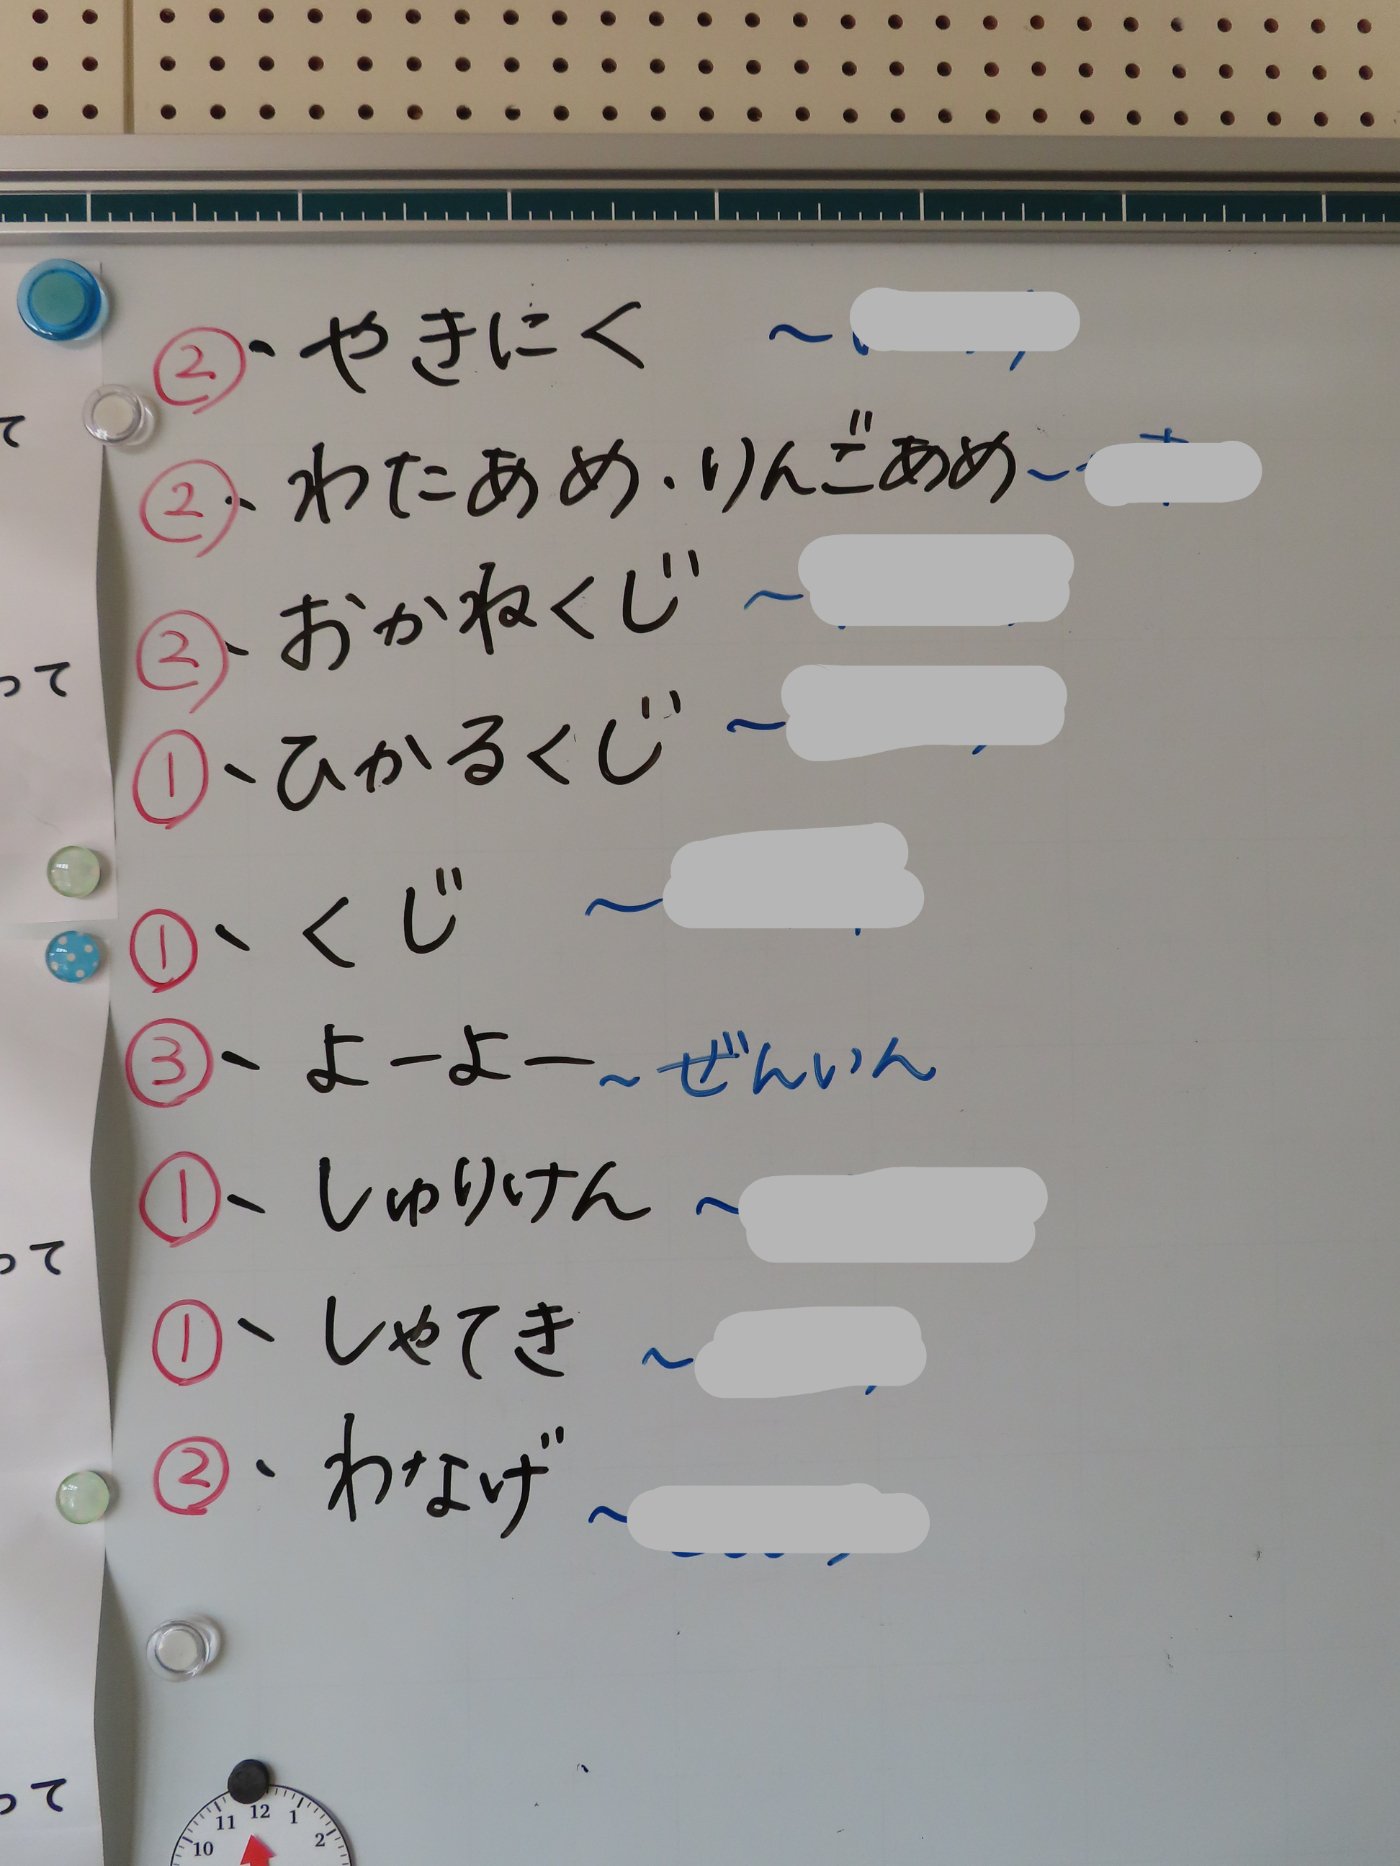 ②、やきにく ～
②、わたあめ・りんごあめ～
②、おかねくじ ～
①、ひかるくじ ～
①、くじ ～
③、よーよー～ぜんいん
①、しゅりけん ～
①、しゃてき ～
②、わなげ ～
て
って
って
って
10 11 12 1 2